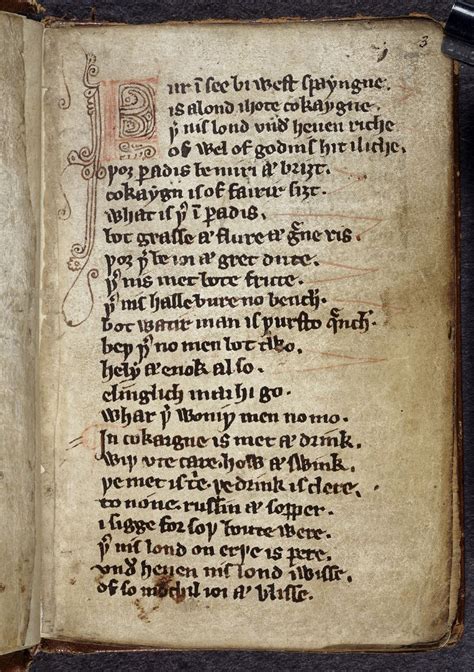 3
Fur ī see bi west spayngne.
is a lond ihote cokaygne.
þ̄ nis lond vnd̓ heuen riche
of wel of godnis hit iliche.
þoȝ paradis be miri ⁊ briȝt.
cokaygn is of fairir siȝt.
what is þ̄ ī paradis.
bot grasse ⁊ flure ⁊ g̃ne ris.
þoȝ þ̄ be ioi ⁊ gret dute.
þ̄ nis met bote frute.
þ̄ nis halle bure no bench̓.
bot watir man is þursto q̃nch̓.
beþ þ̄ no men bot two.
hely ⁊ enok also.
elinglich mai hi go.
whar þ̄ woniþ men no mo.
In cokaigne is met ⁊ drink.
wiþ vte care. how ⁊ swink.
þe met is tͥe. þe drink is clere.
to none. russin ⁊ sopper.
i sigge for soþ boute were.
þ̄ nis lond on erþe is pere.
vnd̓ heuen nis lond iwisse.
of so mochil ioi ⁊ blisse.